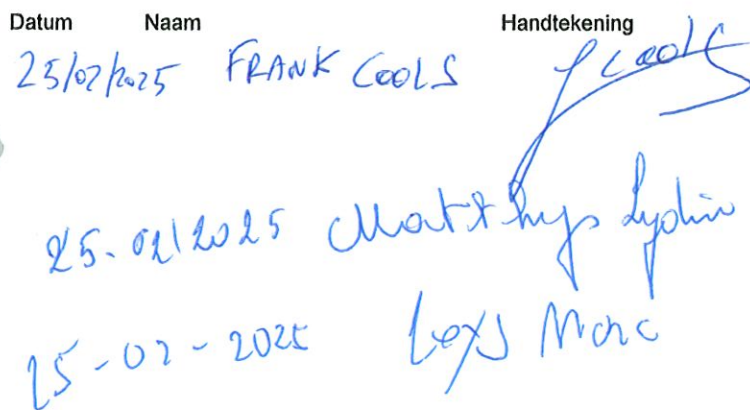 Datum Naam Handtekening
25/02/2025 FRANK COOLS fcools
25-02/2025 Matthys Lydia
25-02-2025 Leys Marc